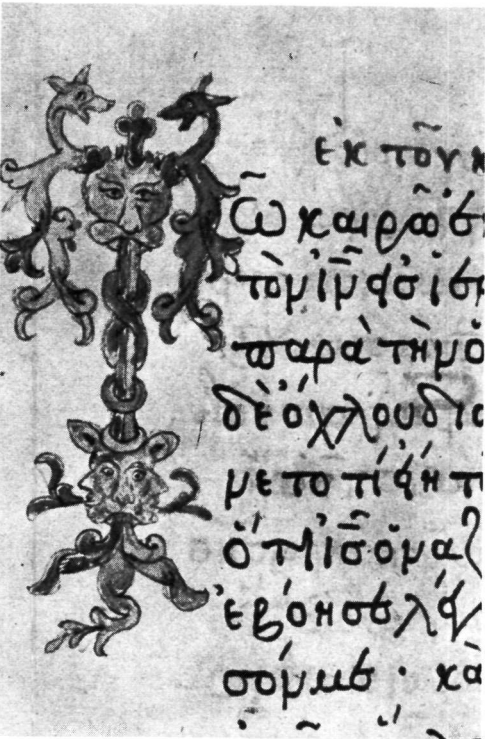 ἐκ τοῦ κ
ῶ καιρῶ ἐ
τὸν ἰ̅ν̅ εἰς
παρὰ τὴν ὁ
δὲ ὄχλου δια
νετο τί εἴη τ
ὅτι ἰ̅ς̅ ὁ ναζ
ἐβόησε λέγ
σόν με · κα